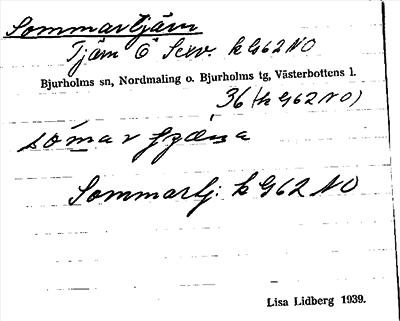 Sommartjärn
Tjärn Ö k G62 NO
Bjurholms sn, Nordmaling o. Bjurholms tg, Västerbottens l.
36 (k G62 NO)
Sommartj. k G62 NO
Lisa Lidberg 1939.